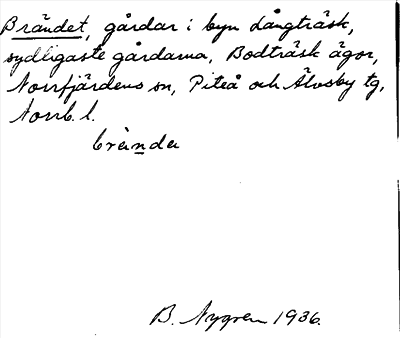 Brändet, gårdar i byn Långträsk,
sydligaste gårdarna, Bodträsk ägor,
Norrfjärdens sn, Piteå och Älvsby tg,
Norrb. l.
brèndə
B. Nygren 1936.